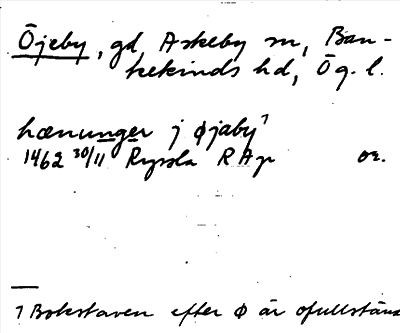 Öjeby, gd, Askeby sn, Ban-
kekinds hd, Ög. l.
hænunger j øjaby 1
1462 30/11 Ryssla RAp or.
1 Bokstaven efter ø är ofullständ